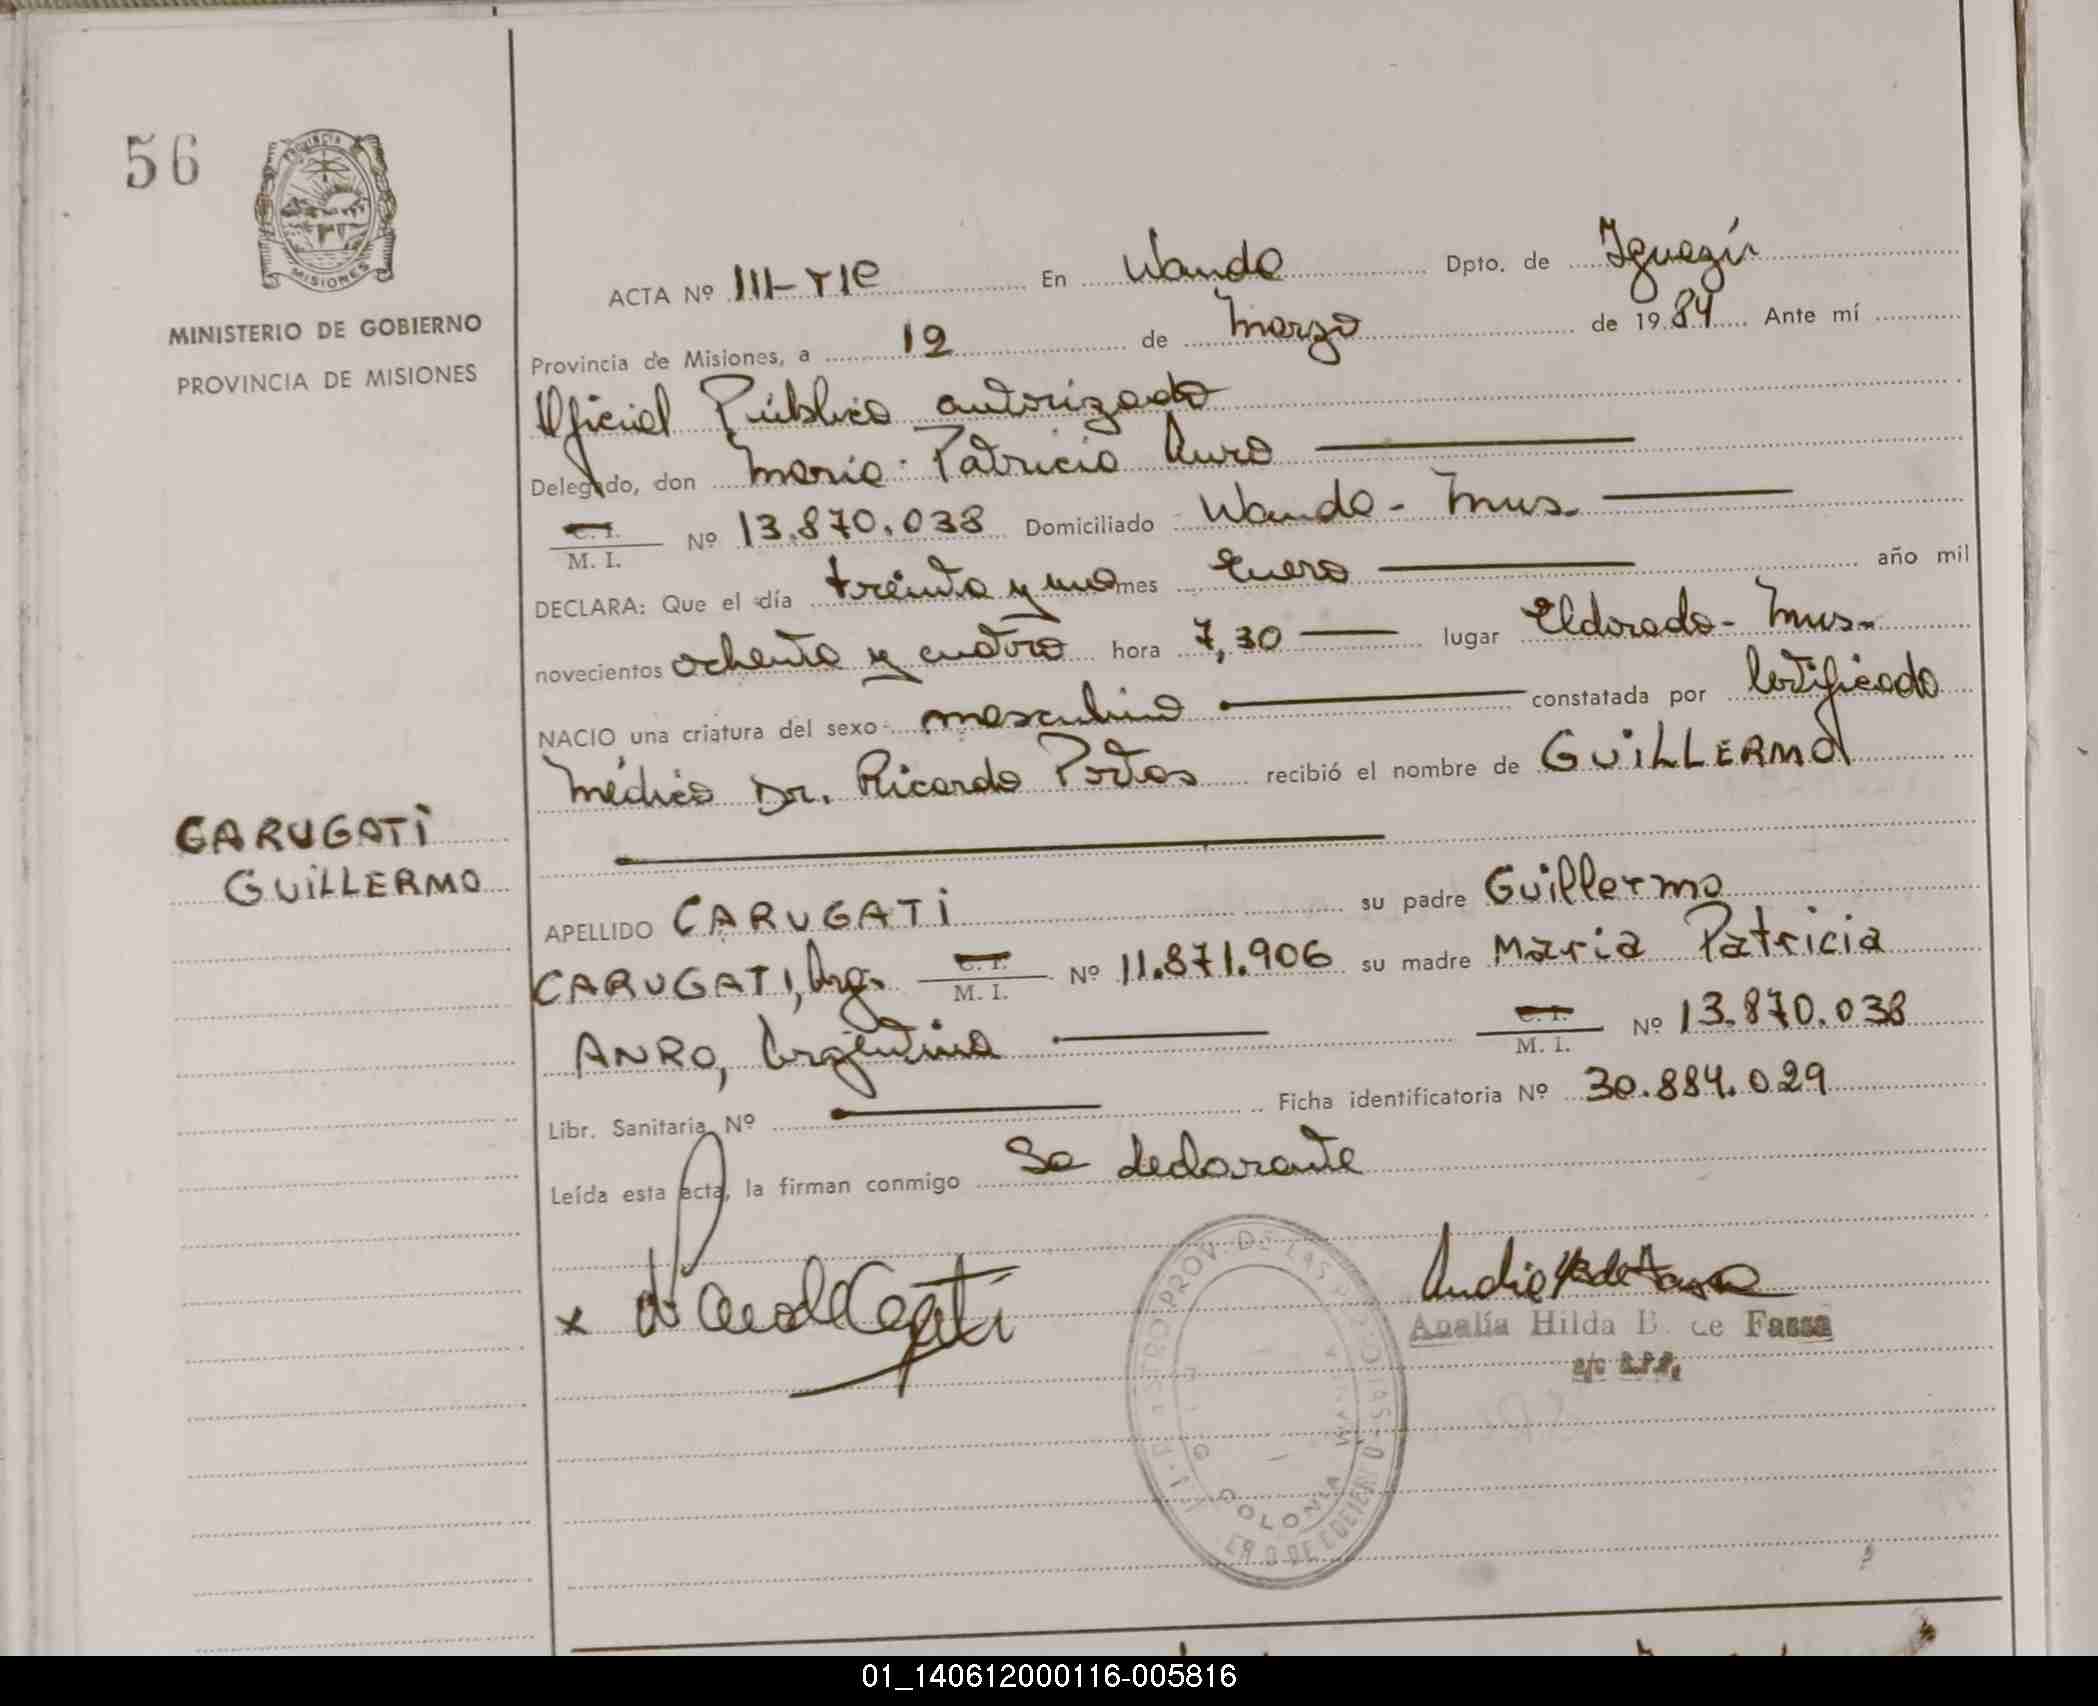 56
PROVINCIA
MISIONES
MINISTERIO DE GOBIERNO
PROVINCIA DE MISIONES
ACTA Nº III-TIC En Wanda Dpto. de Iguazú
Provincia de Misiones, a 12 de Marzo de 1984 Ante mí
Oficial Público autorizado
Delegado, don Maria Patricia Anro
C. I. / M. I. Nº 13.870.038 Domiciliado Wanda - Mnes.
DECLARA: Que el día treinta y uno mes Enero año mil
novecientos ochenta y cuatro hora 7,30 lugar Eldorado - Mnes.
NACIO una criatura del sexo masculino constatada por Certificado
Médico Dr. Ricardo Portas recibió el nombre de GUILLERMO
CARUGATI
GUILLERMO
APELLIDO CARUGATI su padre Guillermo
CARUGATI, Arg. C. I. / M. I. Nº 11.871.906 su madre Maria Patricia
ANRO, Argentina C. I. / M. I. Nº 13.870.038
Libr. Sanitaria Nº Ficha identificatoria Nº 30.884.029
Leída esta acta, la firman conmigo la declarante
x
Analía Hilda B. de Fassa
PROV. DE LAS
COLONIA WANDA
01_140612000116-005816